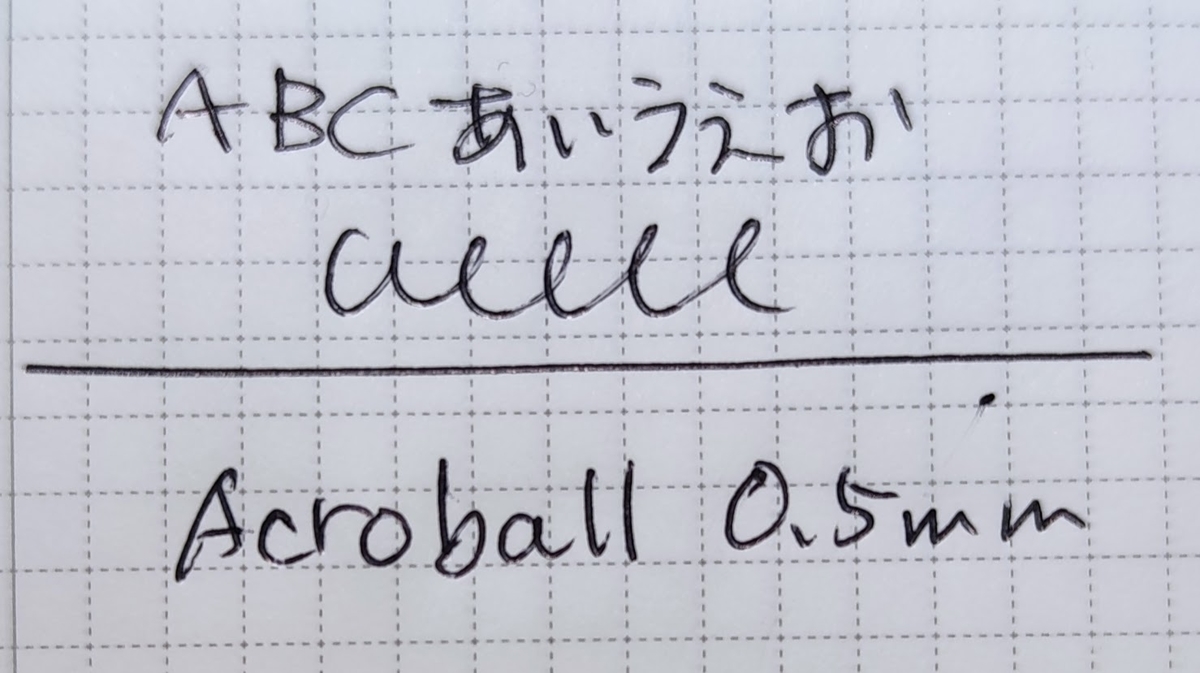 ABCあいうえお
Acroball 0.5mm